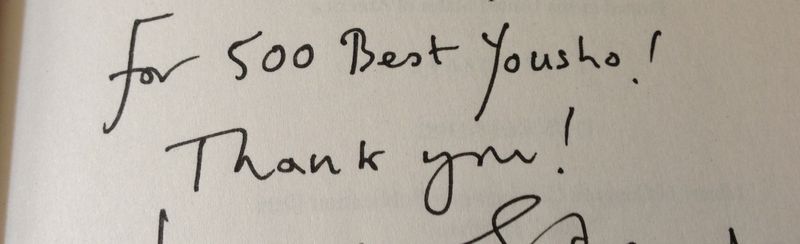 For 500 Best Yousho!
Thank you!